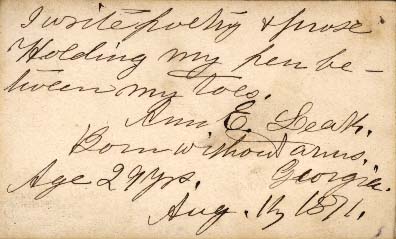 I write poetry & prose
Holding my pen be-
tween my toes.
Ann E. Leak.
Born without arms.
Age 29 yrs. Georgia.
Aug. 1871.